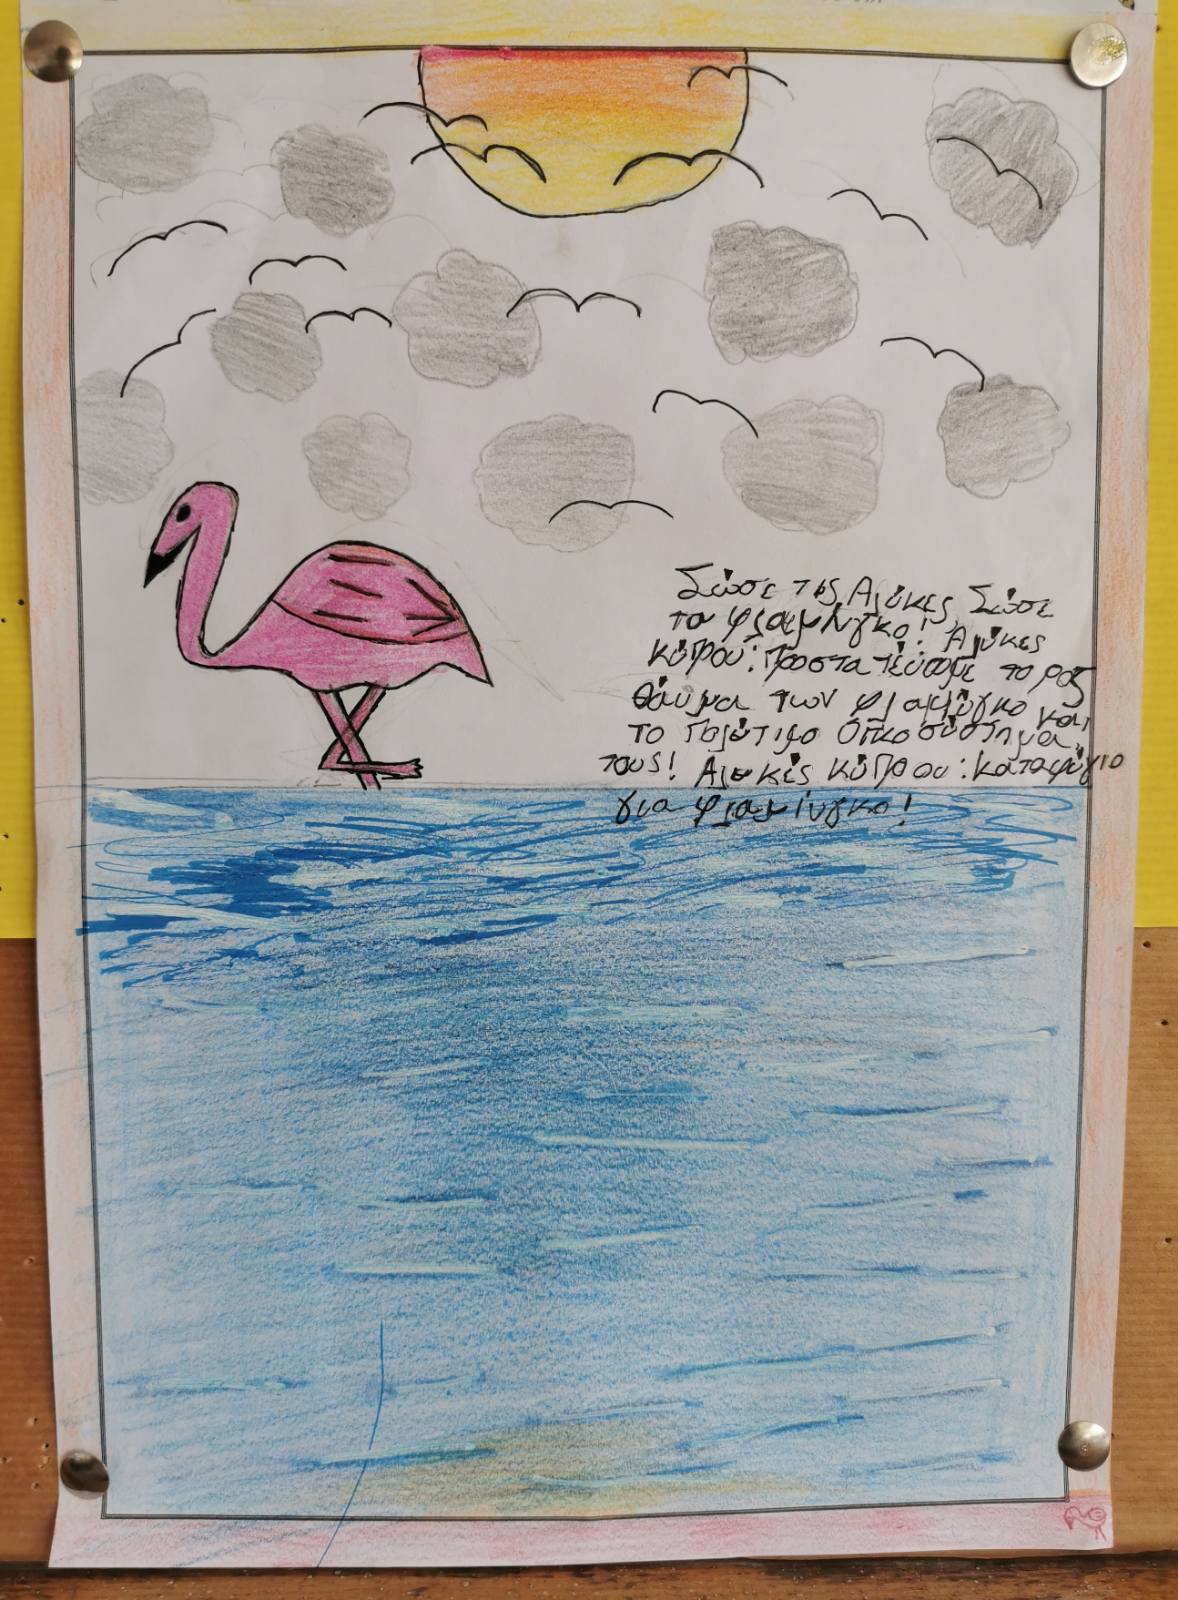 Σώσε τις Αλυκές, Σώσε
τα φλαμίνγκο! Αλυκές
Κύπρου: Προστατεύουμε το ροζ
θαύμα των φλαμίνγκο και
το πολύτιμο οικοσύστημα
τους! Αλυκές Κύπρου: καταφύγιο
για φλαμίνγκο!